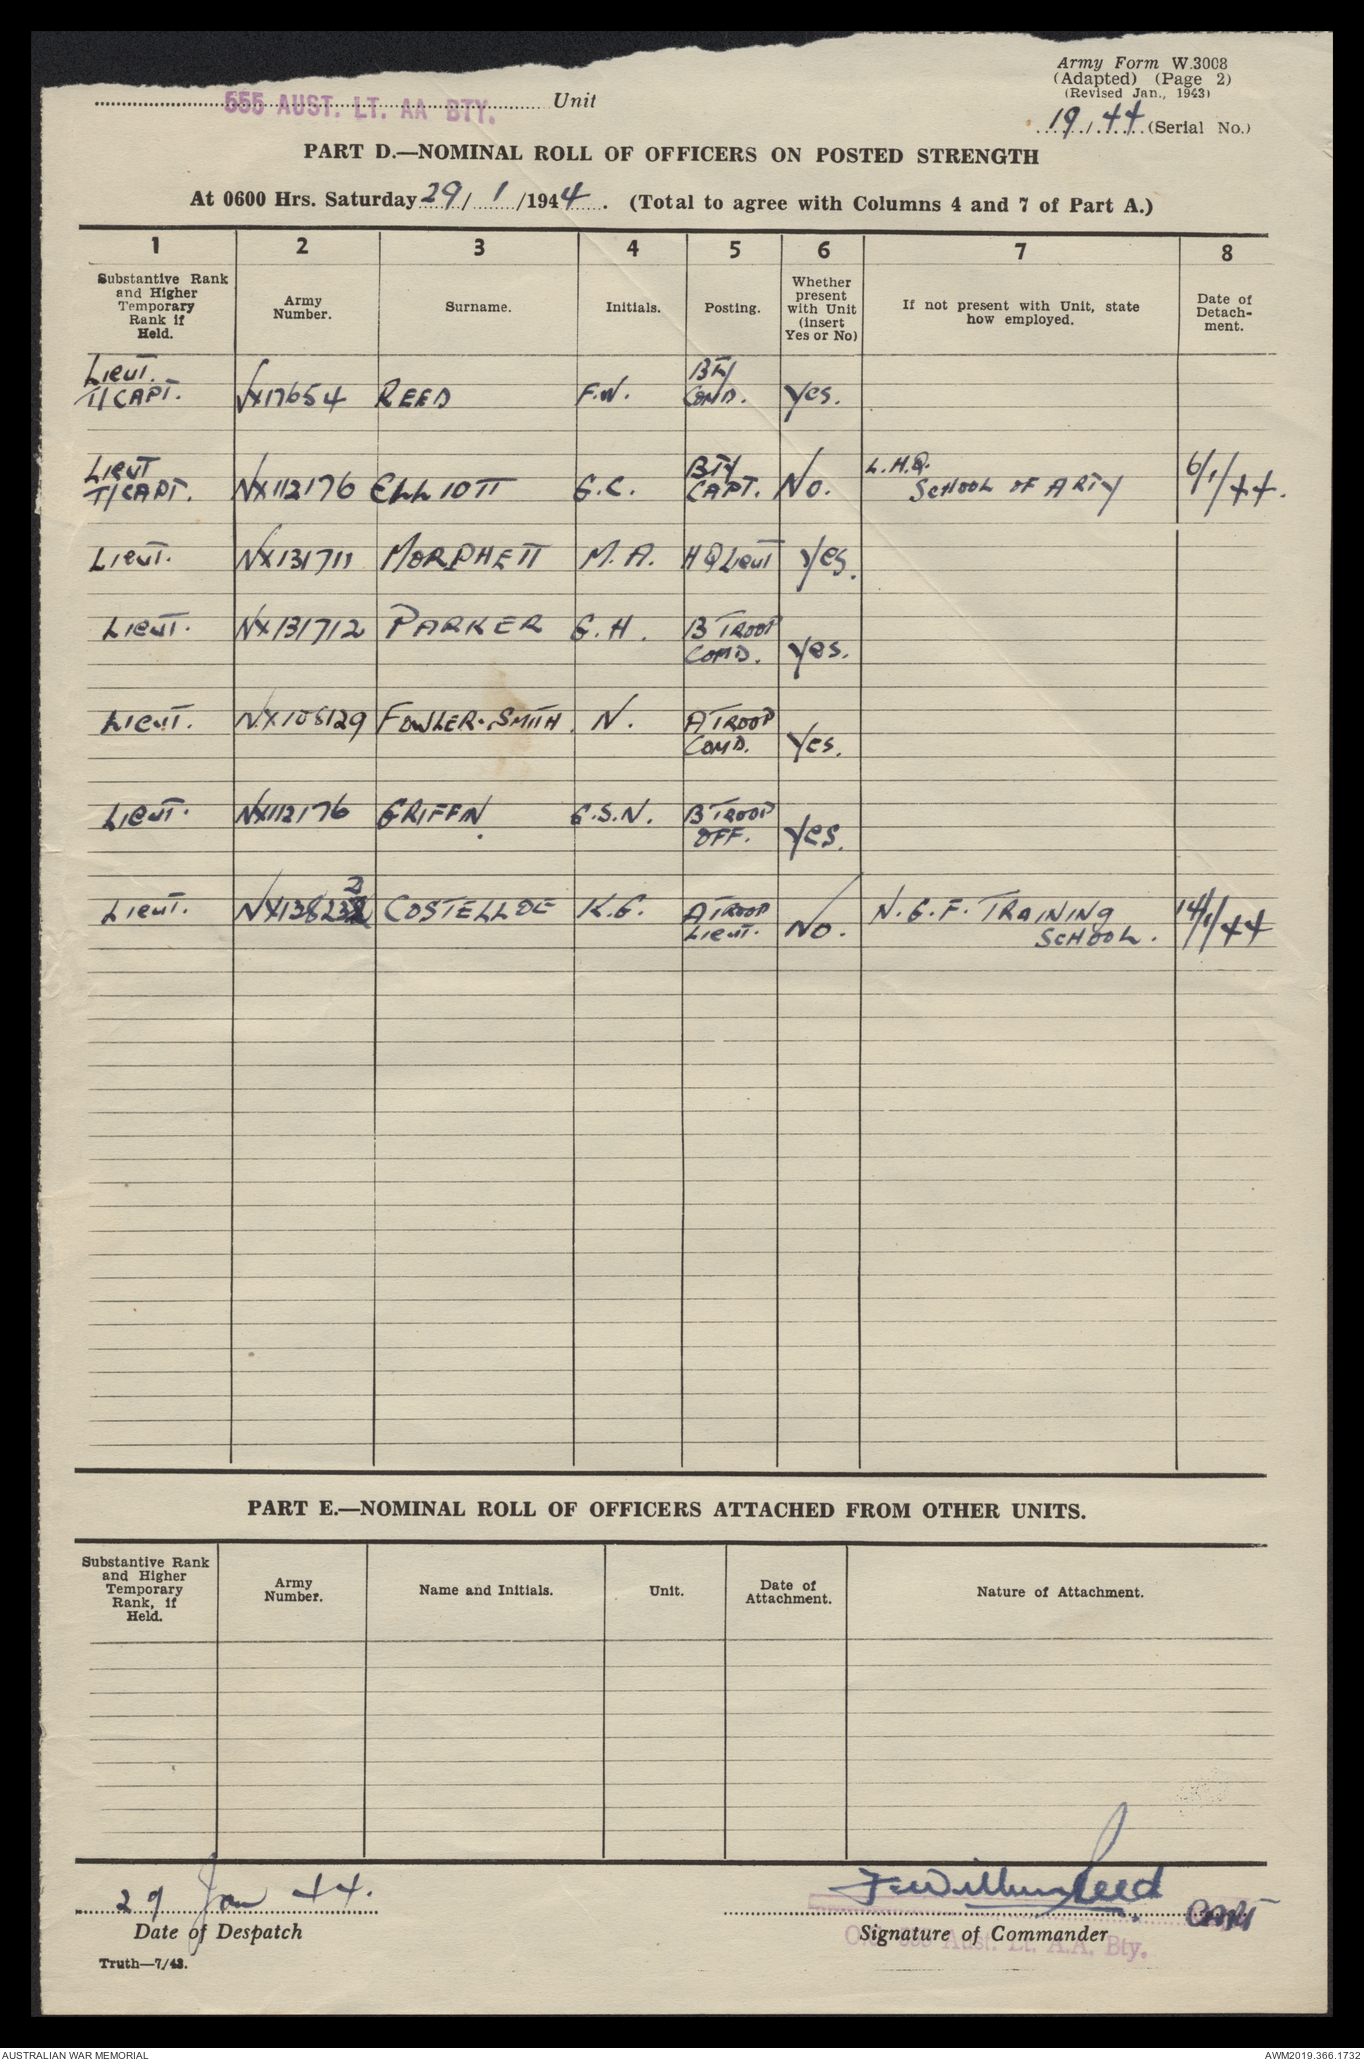 Army Form W.3008
(Adapted) (Page 2)
(Revised Jan., 1943)
555 AUST. LT. AA BTY. Unit
19/44 (Serial No.)
PART D.—NOMINAL ROLL OF OFFICERS ON POSTED STRENGTH
At 0600 Hrs. Saturday 29/1/1944. (Total to agree with Columns 4 and 7 of Part A.)
1 2 3 4 5 6 7 8
Substantive Rank and Higher Temporary Rank if Held. Army Number. Surname. Initials. Posting. Whether present with Unit (insert Yes or No) If not present with Unit, state how employed. Date of Detachment.
Lieut. T/CAPT. VX17654 REED F.W. BTY COMD. Yes.
Lieut T/CAPT. NX112176 ELLIOTT G.C. BTY CAPT. No. L.H.Q. SCHOOL OF ARTY 6/1/44.
Lieut. NX131711 MORPHETT M.A. HQ Lieut Yes.
Lieut. NX131712 PARKER G.H. B TROOP COMD. Yes.
Lieut. NX108129 FOWLER-SMITH N. A TROOP COMD. Yes.
Lieut. NX112176 GRIFFIN G.S.N. B TROOP OFF. Yes.
Lieut. NX138232 COSTELLOE K.G. A TROOP Lieut. No. N.G.F. TRAINING SCHOOL. 14/1/44
PART E.—NOMINAL ROLL OF OFFICERS ATTACHED FROM OTHER UNITS.
Substantive Rank and Higher Temporary Rank, if Held. Army Number. Name and Initials. Unit. Date of Attachment. Nature of Attachment.
29 Jan 44.
Date of Despatch
Reed CAPT
Signature of Commander
O.C. 555 Aust. Lt. A.A. Bty.
Truth—7/43.
AUSTRALIAN WAR MEMORIAL
AWM2019.366.1732